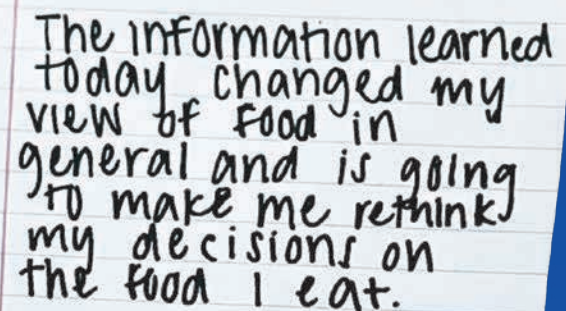 The information learned
today changed my
view of food in
general and is going
to make me rethink
my decisions on
the food I eat.